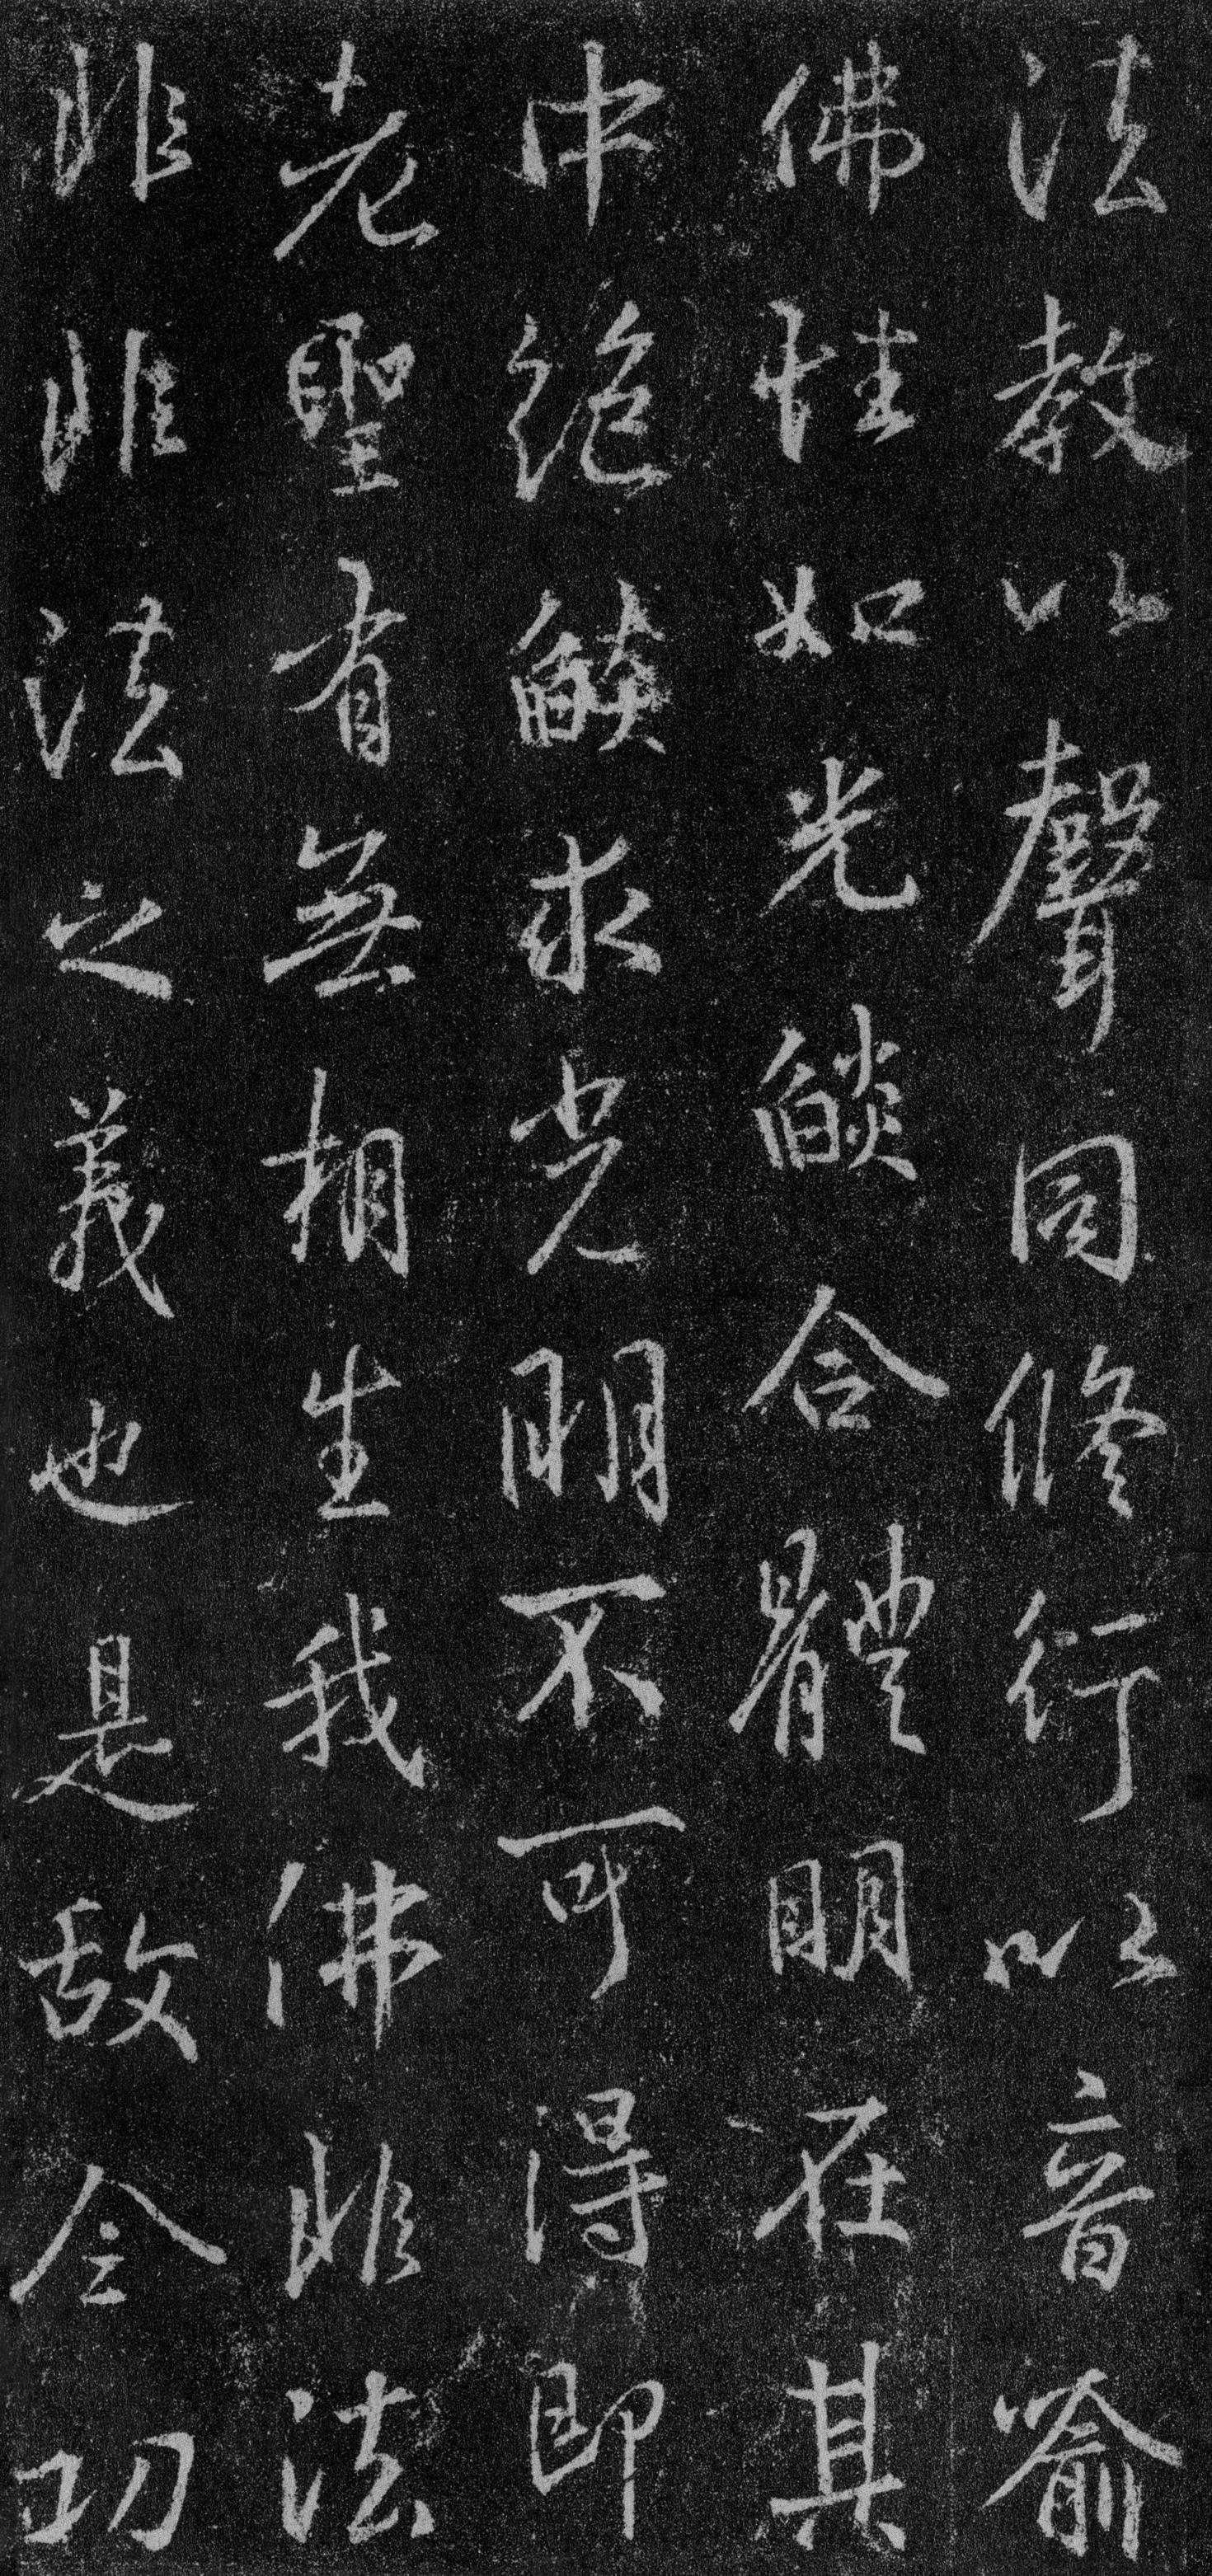 法教以聲同修行以音喻
佛性如光燄合體明在其
中絕燄求光明不可得即
老聖有無相生我佛非法
非非法之義也是故令功